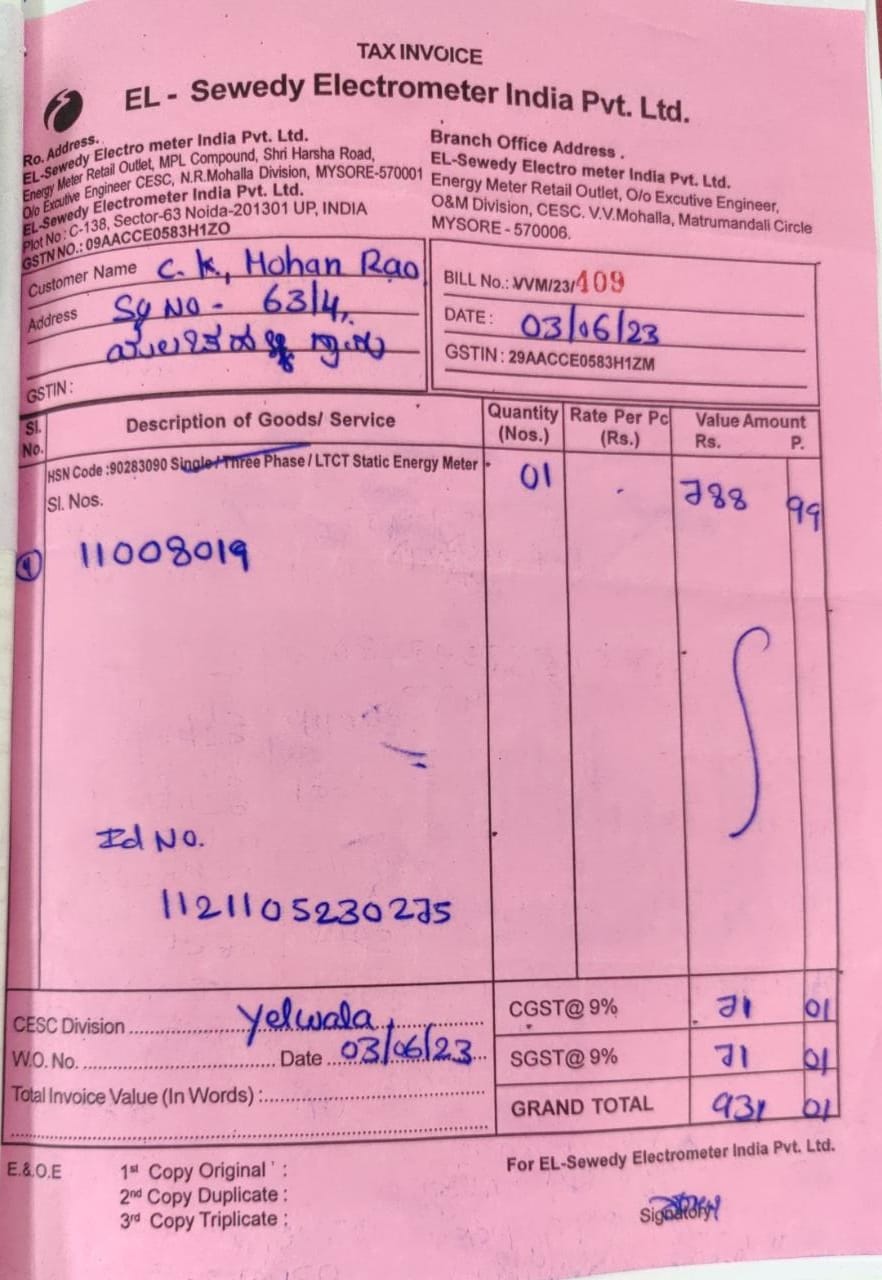 TAX INVOICE
EL - Sewedy Electrometer India Pvt. Ltd.
Ro. Address.
EL-Sewedy Electro meter India Pvt. Ltd.
Energy Meter Retail Outlet, MPL Compound, Shri Harsha Road,
O/o Excutive Engineer CESC, N.R.Mohalla Division, MYSORE-570001
EL-Sewedy Electrometer India Pvt. Ltd.
Plot No : C-138, Sector-63 Noida-201301 UP, INDIA
GSTN NO.: 09AACCE0583H1ZO
Branch Office Address .
EL-Sewedy Electro meter India Pvt. Ltd.
Energy Meter Retail Outlet, O/o Excutive Engineer,
O&M Division, CESC. V.V.Mohalla, Matrumandali Circle
MYSORE - 570006.
Customer Name C. K., Mohan Rao
Address Sy No - 63/4,
GSTIN :
BILL No.: VVM/23/109
DATE : 03/06/23
GSTIN : 29AACCE0583H1ZM
Sl. No. Description of Goods/ Service Quantity (Nos.) Rate Per Pc (Rs.) Value Amount Rs. P.
HSN Code :90283090 Single/Three Phase/LTCT Static Energy Meter 01 788 99
Sl. Nos.
1 11008019
Id No.
1121105230275
CESC Division Yelwala
W.O. No. Date 03/06/23
Total Invoice Value (In Words) :
CGST@ 9% 71 01
SGST@ 9% 71 01
GRAND TOTAL 931 01
E.&.O.E
1st Copy Original :
2nd Copy Duplicate :
3rd Copy Triplicate :
For EL-Sewedy Electrometer India Pvt. Ltd.
Signatory